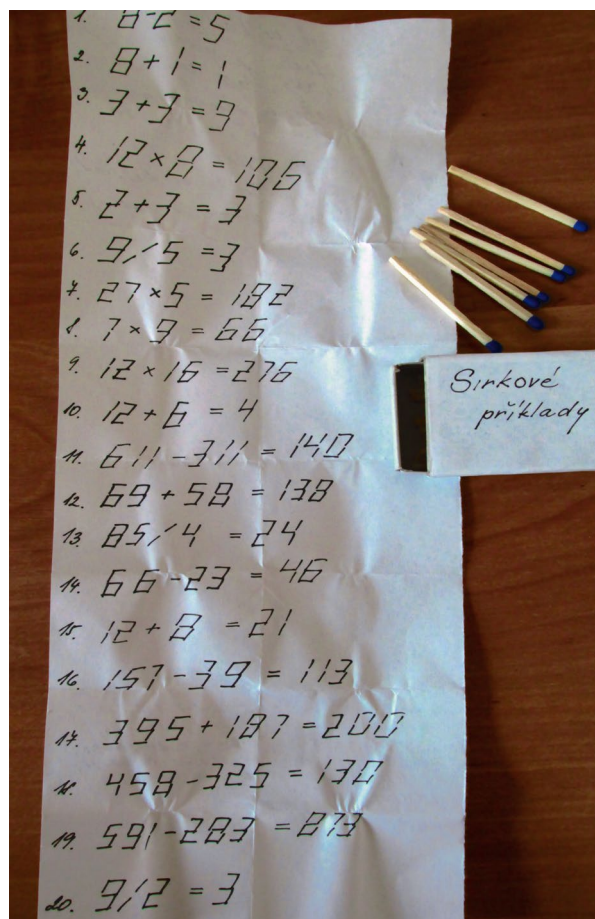 1. 8-2=5
2. 8+1=1
3. 3+3=9
4. 12×8=106
5. 2+3=3
6. 9/5=3
7. 27×5=182
8. 7×9=66
9. 12×16=276
10. 12+6=4
11. 611-311=140
12. 69+58=138
13. 85/4=24
14. 66-23=46
15. 12+8=21
16. 157-39=113
17. 395+187=200
18. 458-325=130
19. 591-283=873
20. 9/2=3
Sirkové
příklady